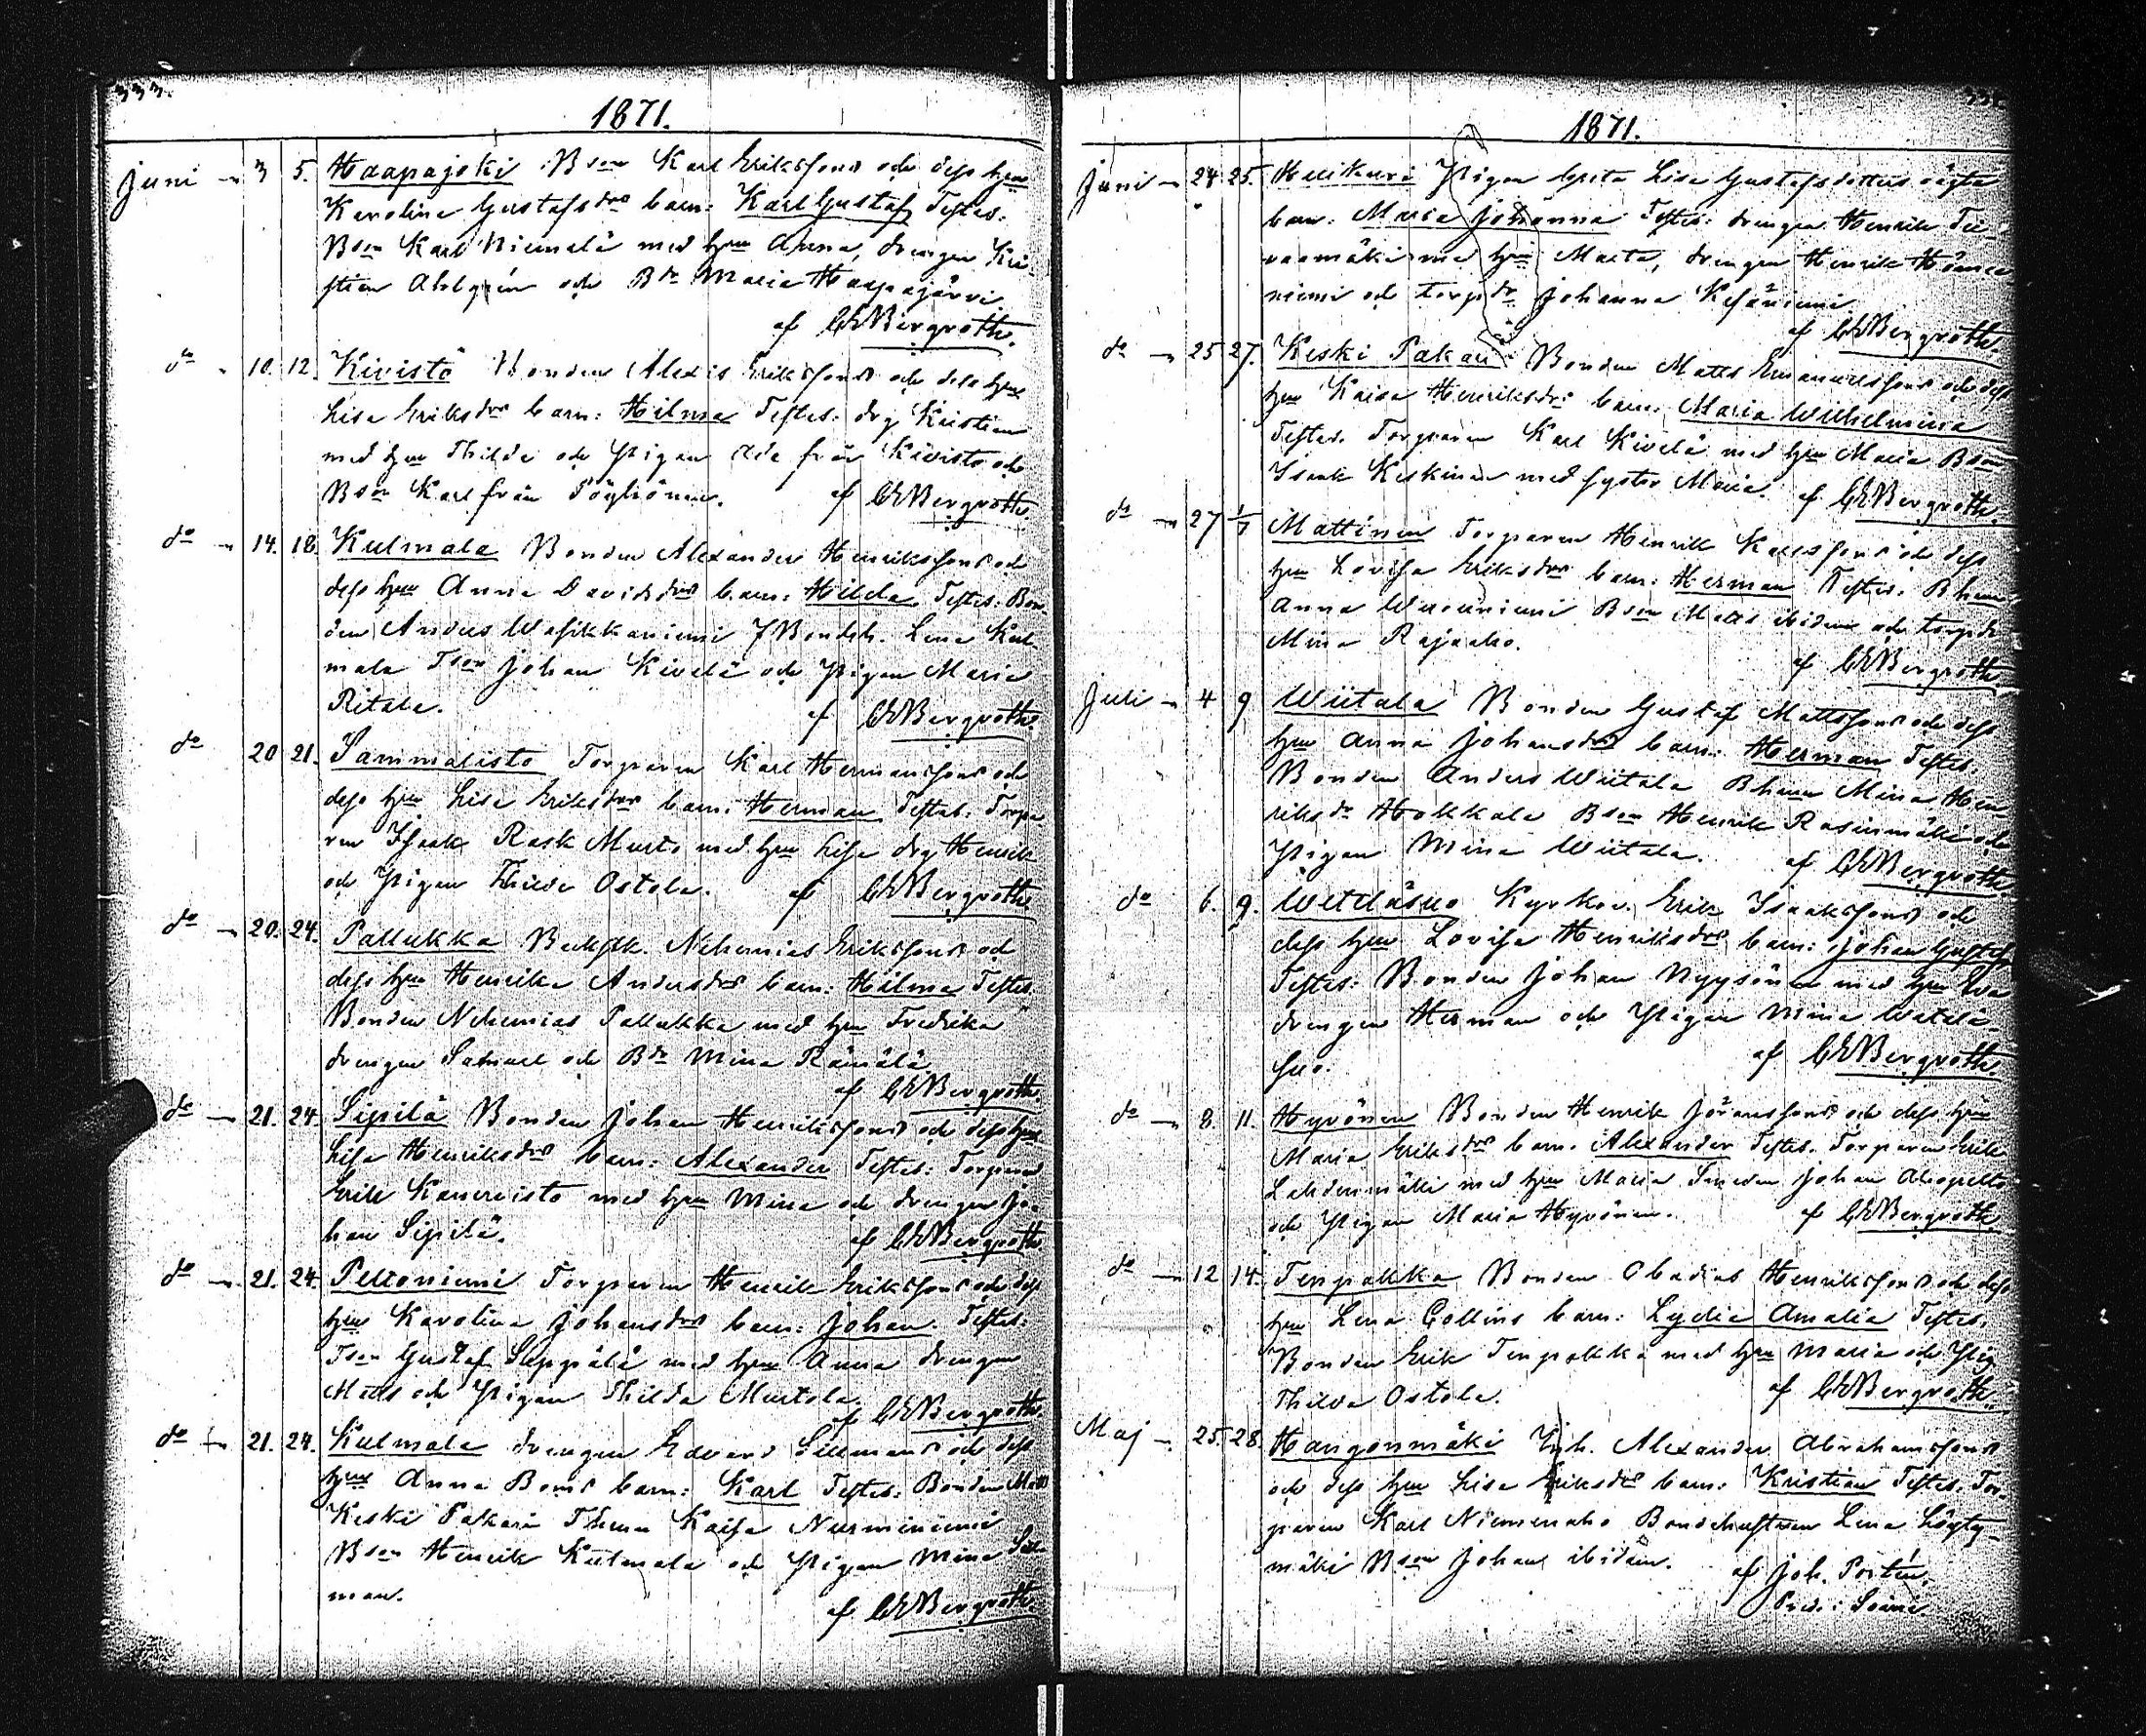 333.
1871.
Juni — 3 5. Haapajoki Bson Karl Eriksson och dess hru
Karolina Gustafsdrs barn: Karl Gustaf Testes:
Bson Karl Niemelä med hru Anna, drengen Kri-
stian Ahlgrén och Bdr Maria Haapajärvi
af CEBergroth.
do 10. 12. Kivistö Bonden Alexis Erikssons och dess hru
Lisa Eriksdrs barn: Hilma Testes. drg Kristian
med hru Thilda och Pigan Ada från Kivistö och
Bson Karl från Pöyhönen. af CEBergroth.
do — 14. 18. Kulmala Bonden Alexander Henrikssons och
dess hru Anna Davidsdrs barn: Hilda. Testes. Bon-
den Anders Wasikkaniemi Bondeh. Lena Kul-
mala Tson Johan Kivelä och Pigan Maria
Ritala. af CEBergroth.
do 20 21. Sammalisto Torparen Karl Hermanssons och
dess hru Lisa Eriksdrs barn. Herman Testes. Torpa-
ren Isaak Rask Murto med hru Lisa drg Henrik
och Pigan Thilda Ostola. af CEBergroth
do — 20. 24. Pallukka Nehemias Erikssons och
dess hru Henrika Andersdrs barn: Hilma Testes.
Bonden Nehemias Pallukka med hru Fredrika
drengen Samuel och Bdr Mina Rämälä.
af CEBergroth.
do — 21. 24. Sipilä Bonden Johan Henrikssons och dess hru
Lisa Henriksdrs barn: Alexander Testes: Torparen
Erik Kanervisto med hru Mina och drengen Jo-
han Sipilä. af CEBergroth
do — 21. 24. Peltoniemi Torparen Henrik Erikssons och dess
hru Karolina Johansdrs barn: Johan. Testes:
Tson Gustaf Seppälä med hru Anna drengen
Matts och Pigan Thilda Murtola.
af CEBergroth.
do — 21. 24. Kulmala drengen Edvard Sillmans och dess
hru Anna Boms barn: Karl Testes: Bonden Matts
Keski Pakari Thrun Kaisa Nurminiemi
Bson Henrik Kulmala och Pigan Mina Sill-
man.
af CEBergroth
1871.
Juni — 24. 25. Heikuri Pigan Greta Lisa Gustafsdotters oägta
barn: Maria Johanna Testes: drengen Henrik
med hru Marta, drengen Henrik
niemi och torpdr Johanna Kesäniemi
af CEBergroth.
do — 25 27. Keski Pakari Bonden Matts Emanuelssons och dess
hru Kaisa Henriksdrs barn: Maria Wilhelmina
Testes. Torparen Karl Kivelä med hru Maria Bson
Isaak Keskinen med syster Maria. af CEBergroth.
do — 27 1/7 Mattinen Torparen Henrik Karlssons och dess
hru Lovisa Eriksdrs barn: Herman Testes. Bhrun
Anna Bson Matts ibidem och torpdr
Mina Rajaaho.
af CEBergroth.
Juli — 4 9 Wiitala Bonden Gustaf Mattssons och dess
hru Anna Johansdrs barn: Herman Testes.
Bonden Anders Wiitala Bhrun Mina Hen-
riksdr Hokkala Bson Henrik Rasinmäki och
Pigan Mina Wiitala. af CEBergroth.
do 6. 9. Weteläsuo Kyrkov. Erik Isaakssons och
dess hru Lovisa Henriksdrs barn: Johan Gustaf
Testes: Bonden Johan Nyysönen med hru Eva
drengen Herman och Pigan Mina Wetelä-
suo. af CEBergroth.
do — 8. 11. Hyvönen Bonden Henrik Johanssons och dess hru
Maria Eriksdrs barn. Alexander Testes. Torparen Erik
Lehdenmäki med hru Maria Smeden Johan Ahopelto
och Pigan Maria Hyvönen. af CEBergroth
do — 12 14. Tenpakka Bonden Obadias Henrikssons och dess
hru Lena Collins barn: Lydia Amalia Testes.
Bonden Erik Tenpakka med hru Maria och Pig.
Thilda Ostola. af CEBergroth.
Maj — 25. 28. Hangonmäki Inh. Alexander Abrahamssons
och dess hru Lisa Eriksdrs barn: Kristian Testes. Tor-
paren Karl Niemenaho Bondehustrun Lena Löyty-
mäki Bson Johan ibidem. af Joh. Portén.
Pred. i Soini.